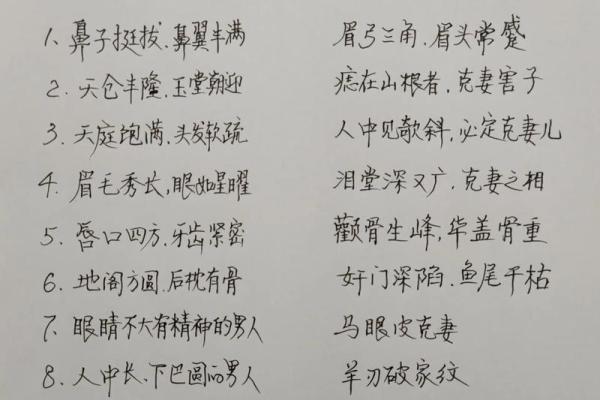 1、鼻子挺拔、鼻翼丰满
2、天仓丰隆、玉堂朝迎
3、天庭饱满、头发软疏
4、眉毛秀长，眼如星曜
5、唇口四方、牙齿紧密
6、地阁方圆、后枕有骨
7、眼睛不大有精神的男人
8、人中长、下巴圆的男人
眉弓三角，眉头常蹙
痣在山根者，克妻害子
人中见欹斜，必定克妻儿
泪堂深又广，克妻之相
颧骨生峰，华盖骨重
奸门深陷、鱼尾干枯
马眼皮克妻
羊刃破家纹